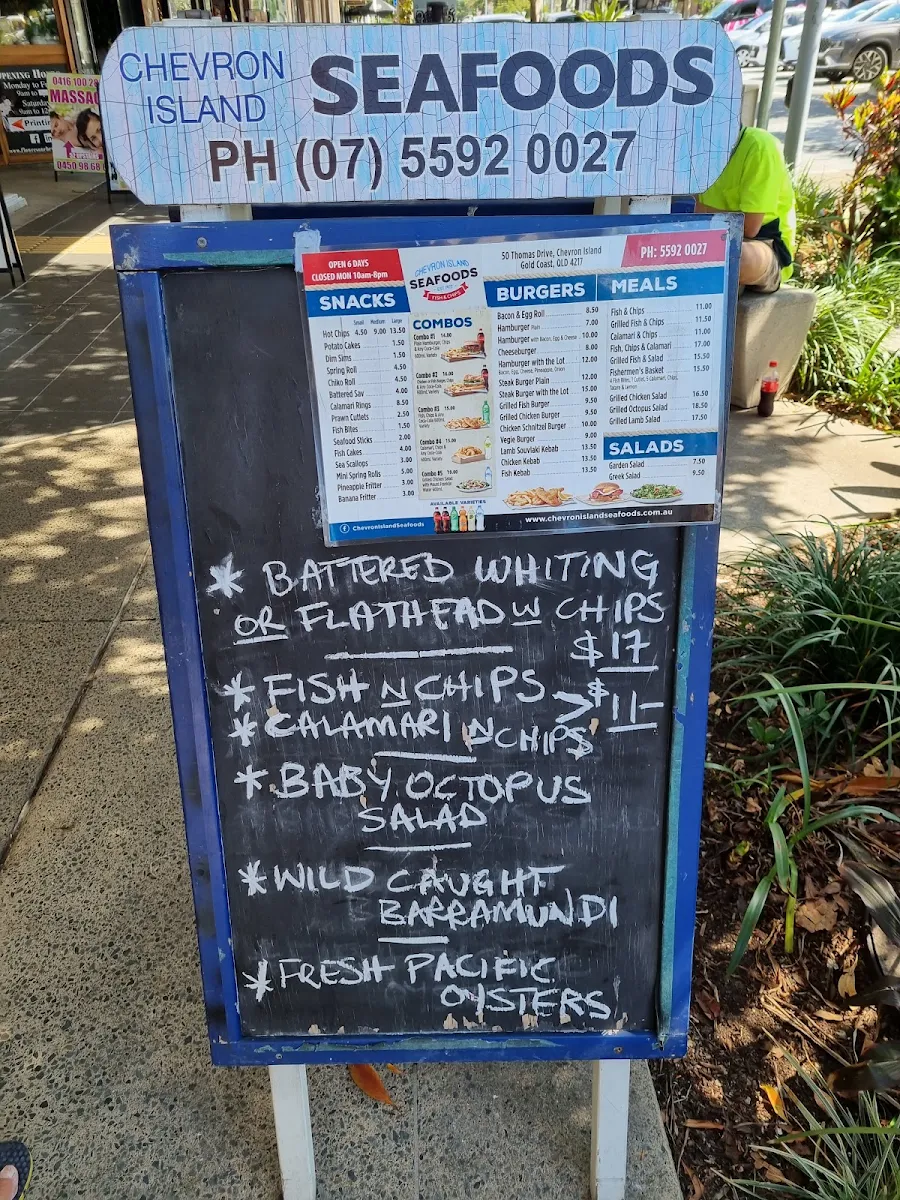 CHEVRON
ISLAND
SEAFOODS
PH (07) 5592 0027
OPENING
Monday to
Saturday
MASSAG
0450 98 68
OPEN 6 DAYS
CLOSED MON 10am-8pm
CHEVRON ISLAND
SEAFOODS
FISH & CHIPS
50 Thomas Drive, Chevron Island
Gold Coast, QLD 4217
PH: 5592 0027
SNACKS
Small Medium Large
Hot Chips 4.50 9.00 13.50
Potato Cakes 1.50
Dim Sims 1.50
Spring Roll 4.50
Chiko Roll 4.50
Battered Sav 4.00
Calamari Rings 8.50
Prawn Cutlets 2.50
Fish Bites 1.50
Seafood Sticks 2.00
Fish Cakes 4.00
Sea Scallops 3.00
Mini Spring Rolls 5.00
Pineapple Fritter 3.00
Banana Fritter 3.00
ChevronIslandSeafoods
COMBOS
Combo #1 14.00
Combo #2
Combo #3 15.00
Combo #4 15.00
Combo #5
AVAILABLE VARIETIES
BURGERS
Bacon & Egg Roll 8.50
Hamburger Plain 7.00
Hamburger with Bacon, Egg & Cheese 10.00
Cheeseburger 8.00
Hamburger with the Lot 12.00
Bacon, Egg, Cheese, Pineapple, Onion
Steak Burger Plain 12.00
Steak Burger with the Lot 15.00
Grilled Fish Burger 9.50
Grilled Chicken Burger 9.50
Chicken Schnitzel Burger 10.00
Vegie Burger 9.00
Lamb Souvlaki Kebab 13.50
Chicken Kebab 13.50
Fish Kebab 13.50
MEALS
Fish & Chips 11.00
Grilled Fish & Chips 11.50
Calamari & Chips 11.00
Fish, Chips & Calamari 17.00
Grilled Fish & Salad 15.50
Fishermen's Basket 15.50
Grilled Chicken Salad 16.50
Grilled Octopus Salad 18.50
Grilled Lamb Salad 17.50
SALADS
Garden Salad 7.50
Greek Salad 9.50
www.chevronislandseafoods.com.au
* BATTERED WHITING
OR FLATHEAD W CHIPS
$17
* FISH N CHIPS
* CALAMARI N CHIPS > $11-
* BABY OCTOPUS
SALAD
* WILD CAUGHT
BARRAMUNDI
* FRESH PACIFIC
OYSTERS